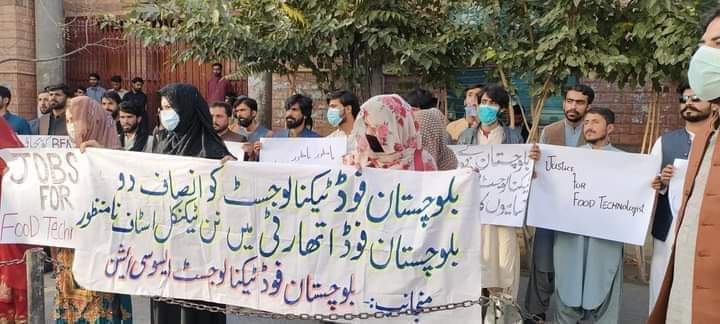 JOBS
FOR
FOOD Techn
بلوچستان فوڈ ٹیکنالوجسٹ کو انصاف دو
بلوچستان فوڈ اتھارٹی میں نن ٹیکنکل اسٹاف نامنظور
منجانب:- بلوچستان فوڈ ٹیکنالوجسٹ ایسوسی ایشن
نامنظور نامنظور
بلوچستان کے
Justice
FOR
FOOD Technologist